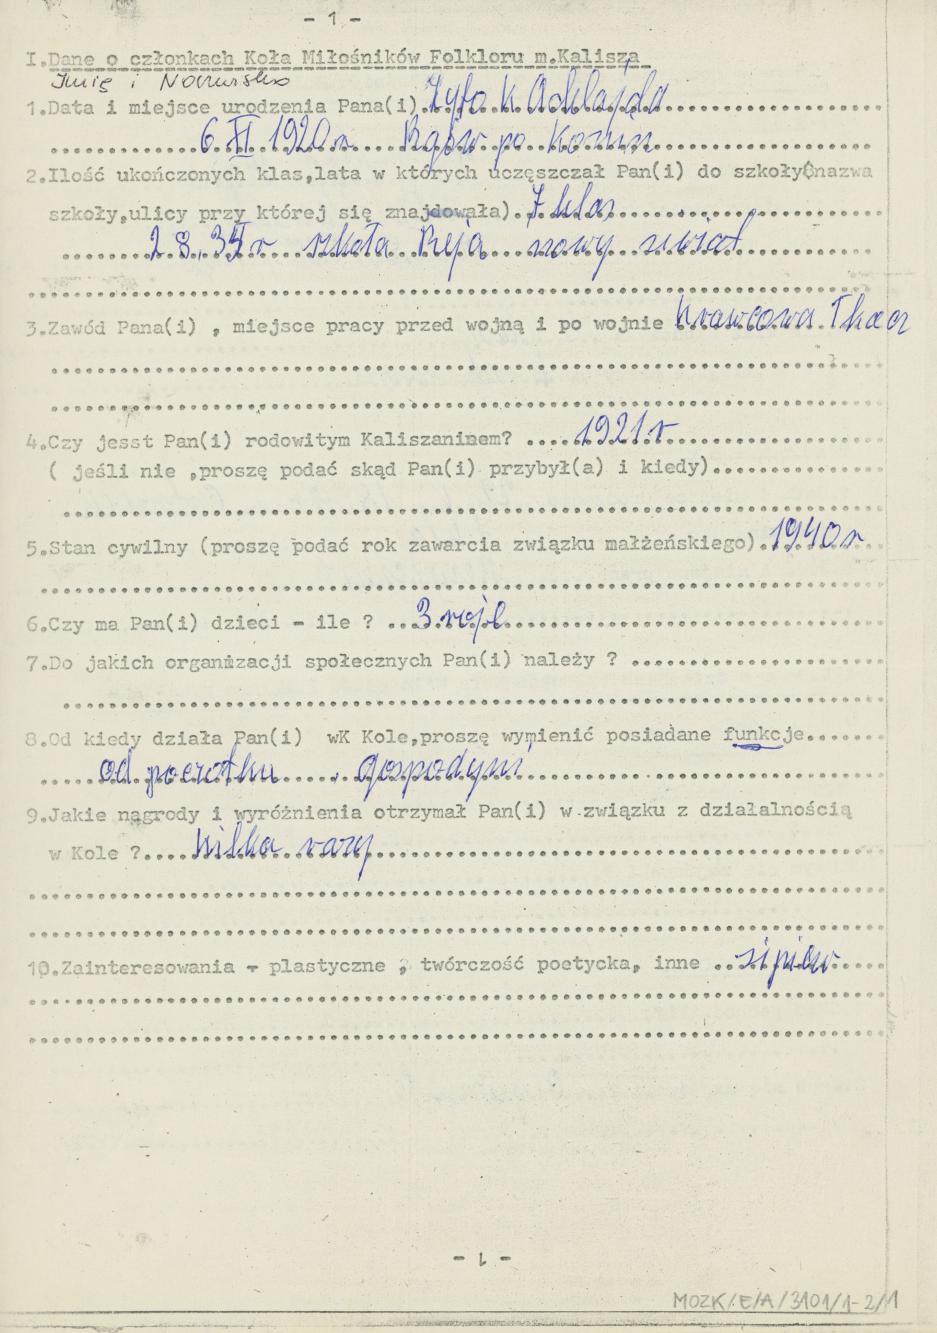 - 1 -
I.Dane o członkach Koła Miłośników Folkloru m.Kalisza
Imię i Nazwisko
1.Data i miejsce urodzenia Pana(i)
6 XI 1920 r po
2.Ilość ukończonych klas,lata w których uczęszczał Pan(i) do szkoły(nazwa
szkoły,ulicy przy której się znajdowała). 7 klas
szkoła Reja nowy swiat
3.Zawód Pana(i) , miejsce pracy przed wojną i po wojnie krawcowa Tkacz
4.Czy jesst Pan(i) rodowitym Kaliszaninem? 1921 r
( jeśli nie ,proszę podać skąd Pan(i) przybył(a) i kiedy)
5.Stan cywilny (proszę podać rok zawarcia związku małżeńskiego) 1940 r
6.Czy ma Pan(i) dzieci - ile ? 3
7.Do jakich organizacji społecznych Pan(i) należy ?
8.Od kiedy działa Pan(i) wK Kole,proszę wymienić posiadane funkcje
od początku . gospodyni
9.Jakie nagrody i wyróżnienia otrzymał Pan(i) w związku z działalnością
w Kole ? kilka razy
10.Zainteresowania - plastyczne , twórczość poetycka, inne sipiew
- 1 -
MOZK/E/A/3101/1-2/1